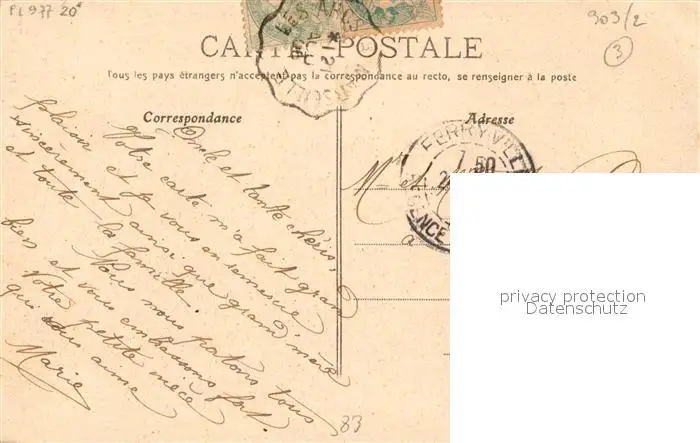 FL 977 20°
903/2
3
CARTE-POSTALE
Tous les pays étrangers n'acceptent pas la correspondance au recto, se renseigner à la poste
Correspondance
Adresse
Oncle et tante chéris,
Votre carte m'a fait grand
plaisir et je vous en remercie
sincèrement ainsi que grand'mère
et toute la famille.
Nous nous portons tous
bien et vous embrassons fort
Votre petite nièce
qui vous aime
Marie
FERRYVILLE
7 50
83
privacy protection
Datenschutz